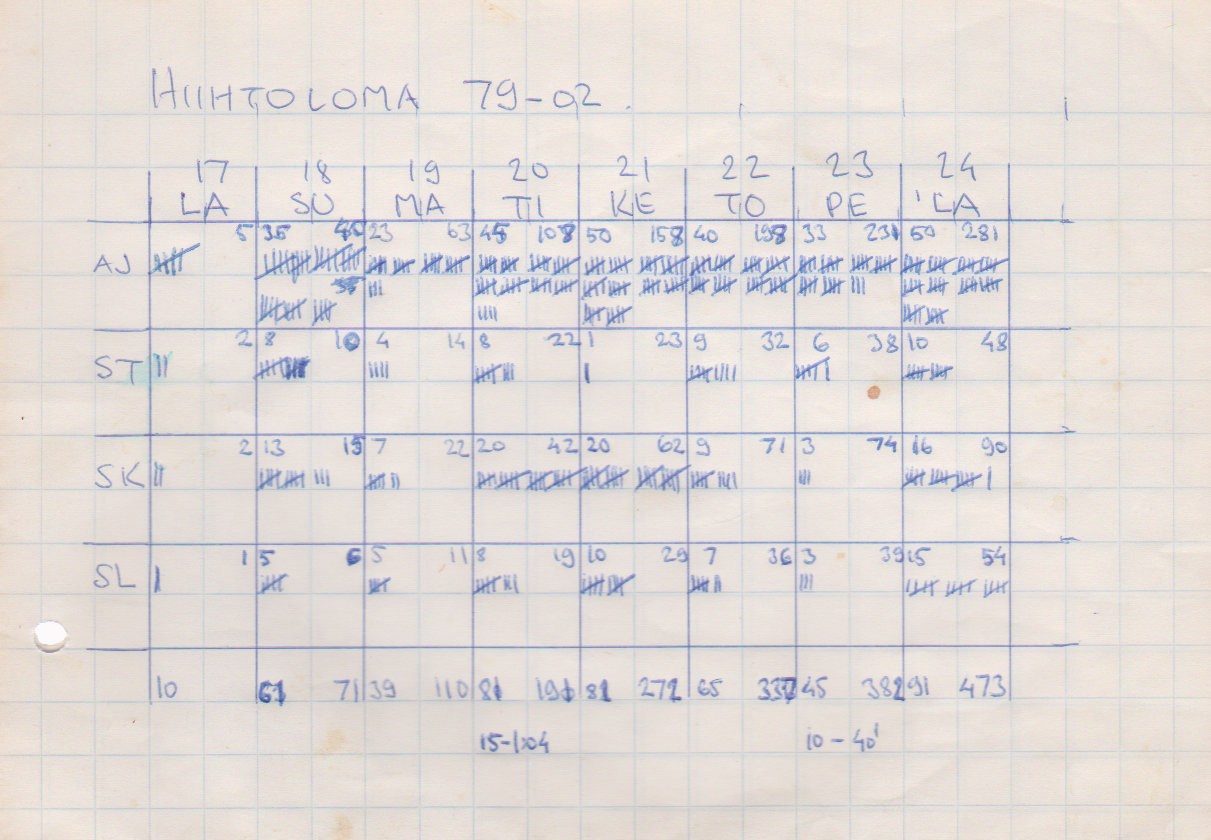 HIIHTOLOMA 79-02.
17 18 19 20 21 22 23 24
LA SU MA TI KE TO PE LA
5 35 40 23 63 45 108 50 158 40 198 33 231 50 281
AJ
35
ST 2 8 10 4 14 8 22 1 23 9 32 6 38 10 48
SK 2 13 15 7 22 20 42 20 62 9 71 3 74 16 90
SL 1 5 6 5 11 8 19 10 29 7 36 3 39 15 54
10 61 71 39 110 81 191 81 272 65 337 45 382 91 473
15-1.04 10-40'